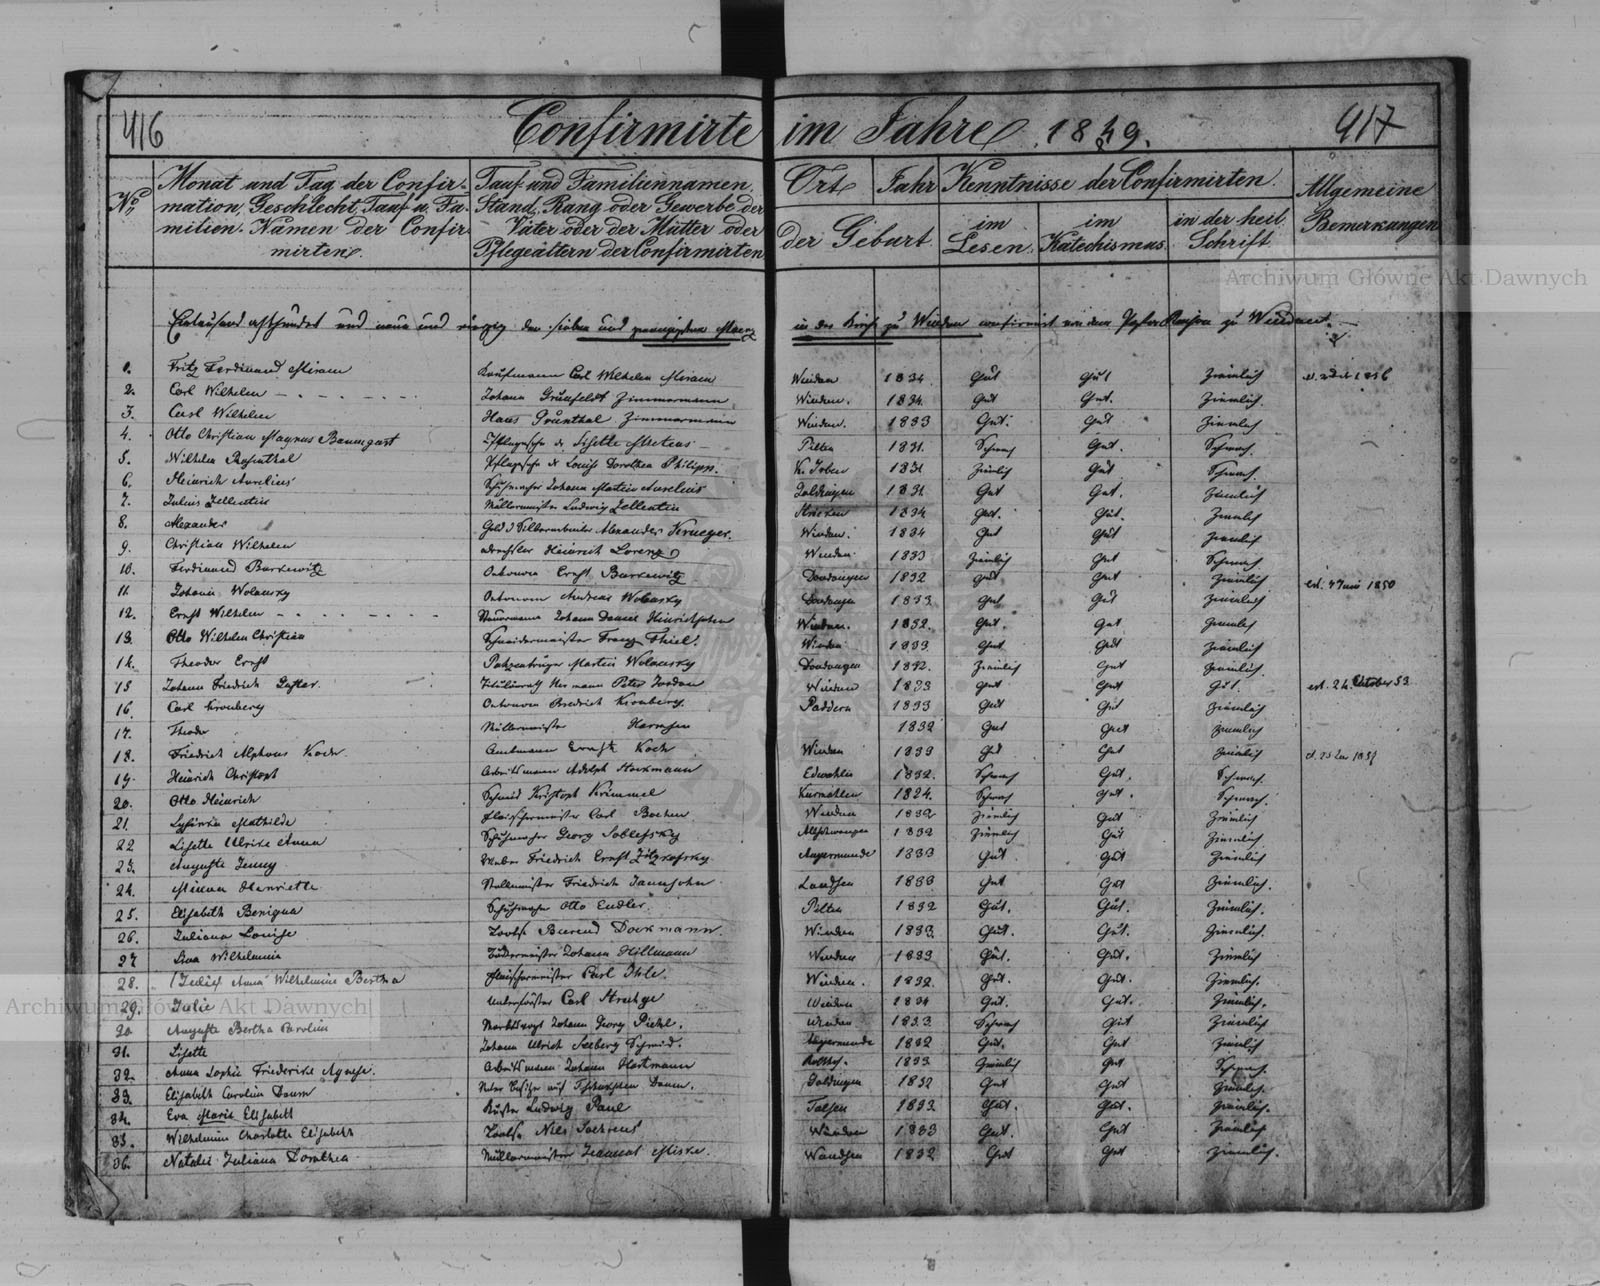 416
Confirmirte im Jahre 1849.
417
No
Monat und Tag der Confirmation, Geschlecht, Tauf u. Familien-Namen der Confirmirten.
Tauf- und Familiennamen, Stand, Rang oder Gewerbe der Väter oder der Mütter oder Pflegeältern der Confirmirten
Ort Jahr
der Geburt.
Kenntnisse der Confirmirten.
im Lesen.
im Katechismus.
in der heil. Schrift
Allgemeine Bemerkungen
Archiwum Główne Akt Dawnych
Eintausend achthundert und neun und vierzig den sieben und zwanzigsten Maerz in der Kirche zu Windau confirmirt von dem Pastor zu Windau.
1. Fritz Ferdinand Miram Kaufmann Carl Wilhelm Miram Windau 1834 Gut Gut Ziemlich
2. Carl Wilhelm Johann Grünfeldt Zimmermann Windau. 1834. Gut Gut. Ziemlich.
3. Carl Wilhelm Hans Grünthal Zimmermann Windau. 1833 Gut. Gut Ziemlich
4. Otto Christian Magnus Baumgart Pflegesohn d. Lisette Pilten 1831. Schwach Gut. Schwach.
5. Wilhelm Rosenthal Pflegesohn d. Louise Dorothea Philipp. 1831 Ziemlich Gut Schwach.
6. Heinrich Aurelius Schuhmacher Johann Martin Aurelius Goldingen 1831. Gut Gut. Ziemlich
7. Julius Zellentin Müllermeister Ludwig Zellentin 1834 Gut. Gut. Ziemlich
8. Alexander Gold & Silberarbeiter Alexander Krueger. Windau. 1834 Gut Gut Ziemlich
9. Christian Wilhelm Drechsler Heinrich Lorenz Windau 1833 Ziemlich Gut Schwach.
10. Ferdinand Burkewitz Oeconom Ernst Burkewitz Dondangen 1832 Gut Gut Ziemlich
11. Johann Wolansky Oeconom Andreas Wolansky Dondangen 1833 Gut Gut Ziemlich
12. Ernst Wilhelm Steuermann Johann Daniel Hinrichsohn Windau. 1832. Gut. Gut Ziemlich
13. Otto Wilhelm Christian Schneidermeister Franz Thiel. Windau 1833 Gut Gut Ziemlich
14. Theodor Ernst Martin Wolansky Dondangen 1832. Ziemlich Gut Ziemlich.
15 Johann Friedrich Gustav. Titulairrath Hermann Peter Jordan Windau 1833 Gut Gut Gut. 24. October 53
16. Carl Kronberg Oeconom Friedrich Kronberg. Paddern 1833 Gut Gut Ziemlich
17. Theodor Müllermeister 1832 Gut Gut Ziemlich
18. Friedrich Alphons Koch Amtmann Ernst Koch Windau 1833 Gut Gut Ziemlich
19. Heinrich Christoph Arbeitsmann Adolph Edwahlen 1832. Schwach Gut. Schwach.
20. Otto Heinrich Schmid Christoph Krimmel Kurmahlen 1824. Schwach Gut. Schwach.
21. Mathilde Fleischermeister Carl Windau 1832 Ziemlich Gut Ziemlich
22 Lisette Ulrike Anna Schuhmacher Georg Soblefsky Altschwangen 1832 Ziemlich Gut Ziemlich.
23. Auguste Jenny Weber Friedrich Ernst Angermunde 1833 Gut. Gut Ziemlich
24. Minna Henriette Friedrich Jannsohn Landsen 1833 Gut Gut Ziemlich.
25. Elisabeth Benigna Schuhmacher Otto Endler. Pilten 1832 Gut. Gut. Ziemlich.
26. Juliana Louise Lootse Beerend Dockmann. Windau 1833 Gut. Gut. Ziemlich.
27 Lina Wilhelmine Johann Hillmann Windau 1833 Gut. Gut. Ziemlich
28. Anna Wilhelmine Bertha Fleischermeister Carl Ihle. Windau. 1832. Gut. Gut. Ziemlich.
Archiwum Główne Akt Dawnych
29. Julie Unterförster Carl Windau 1834 Gut. Gut. Ziemlich.
30 Auguste Bertha Carolin Marktvogt Johann Georg Piekel. Windau 1833. Schwach Gut Ziemlich
31. Lisette Johann Ulrich Seeberg Schmid. Angermunde 1832 Gut. Gut Ziemlich
32. Anna Sophie Friederike Agnese. Arbeitsmann Johann Hartmann 1833 Ziemlich Gut Schwach.
33. Elisabeth Carolina Daum Goldingen 1832 Gut Gut Ziemlich.
34. Eva Maria Elisabeth Küster Ludwig Paul Talsen 1833 Gut. Gut. Ziemlich.
35. Wilhelmine Charlotte Elisabeth Lootse Nils Windau 1833 Gut. Gut Ziemlich
36. Natalie Juliana Dorothea Müllermeister Wandsen 1832 Gut Gut Ziemlich.